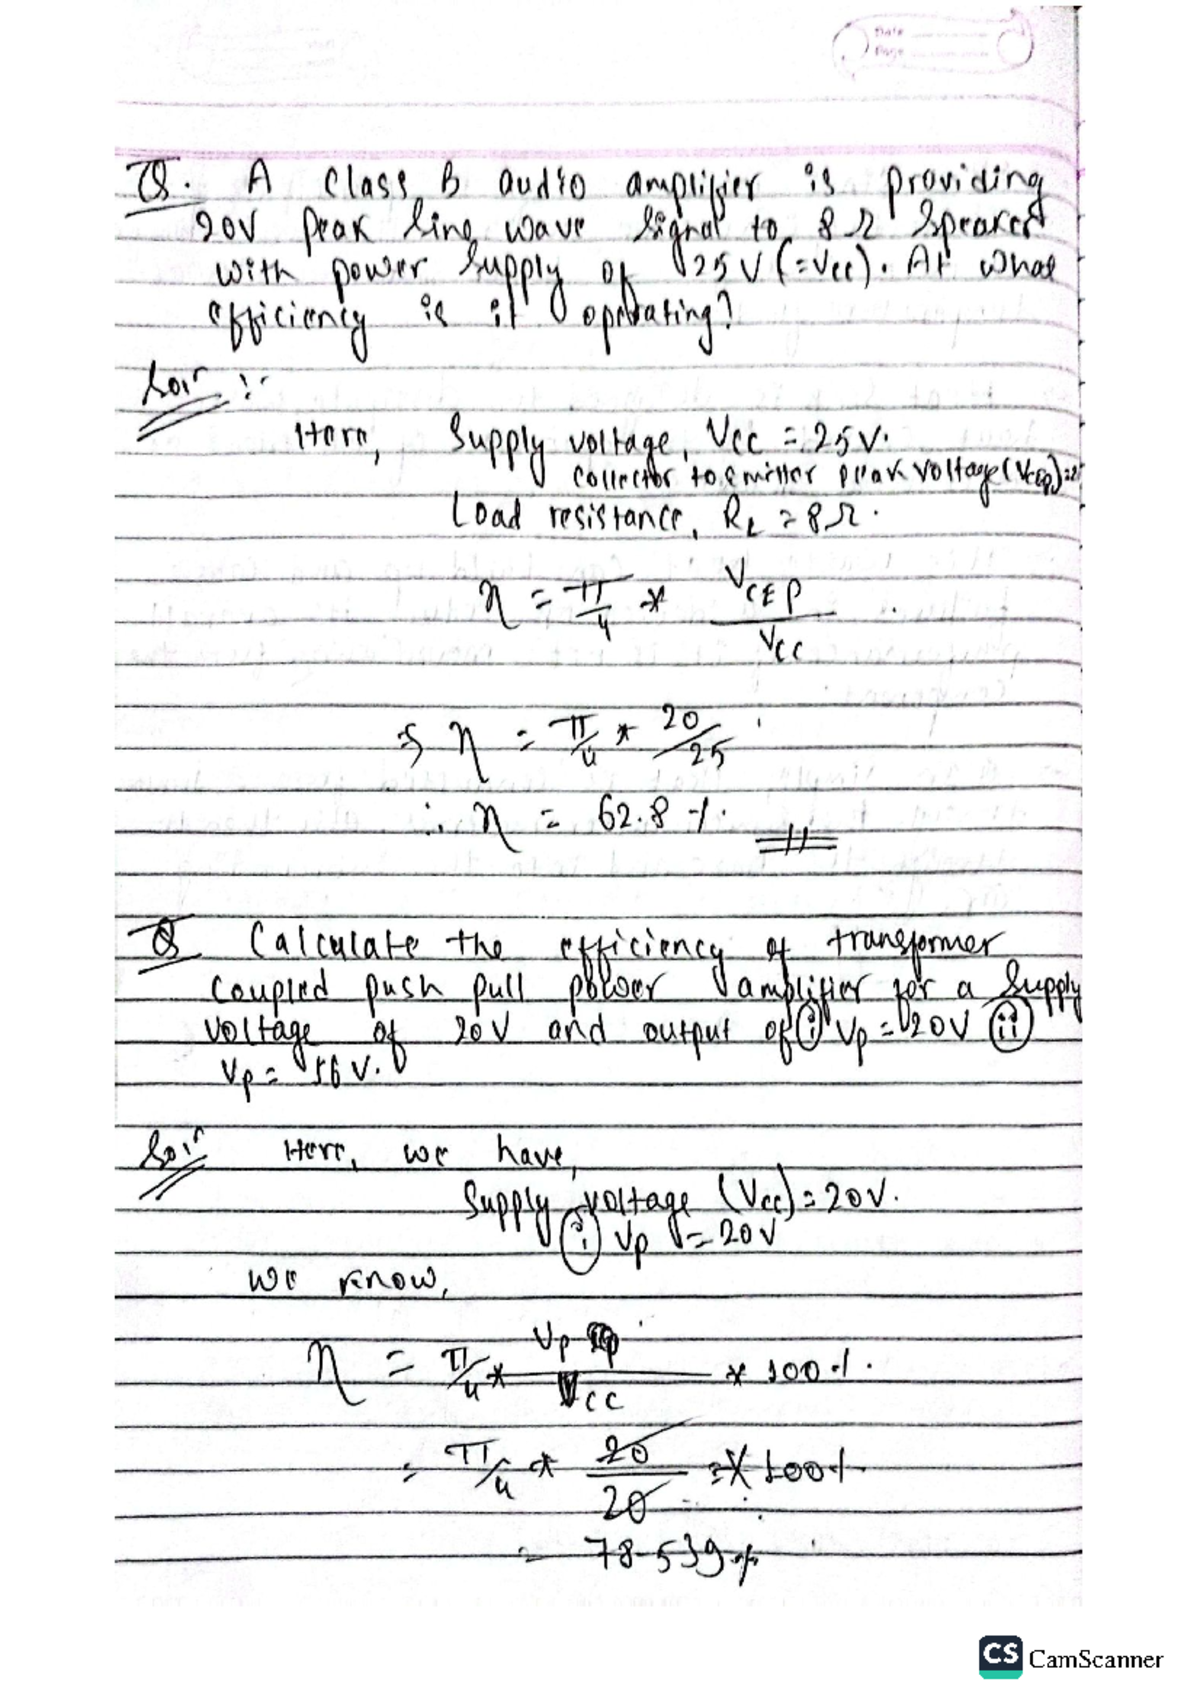 Date
Page
Q. A class B audio amplifier is providing
20V peak sine wave signal to 8Ω speaker
with power supply of 25V (=Vcc). At what
efficiency is it operating?
Sol<sup>n</sup>:
Here, Supply voltage, Vcc = 25V.
collector to emitter peak voltage (VCEp) =
Load resistance, RL = 8Ω.
η = π/4 * VCEP/VCC
⇒ η = π/4 * 20/25
∴ η = 62.8 %.
Q Calculate the efficiency of transformer
coupled push pull power amplifier for a supply
voltage of 20V and output of (i) Vp = 20V (ii)
Vp = 16V.
Sol<sup>n</sup> Here, we have,
Supply voltage (Vcc) = 20V.
(i) Vp = 20V
we know,
η = π/4 * Vp/VCC * 100%.
= π/4 * 20/20 × 100%
= 78.539%
CS CamScanner